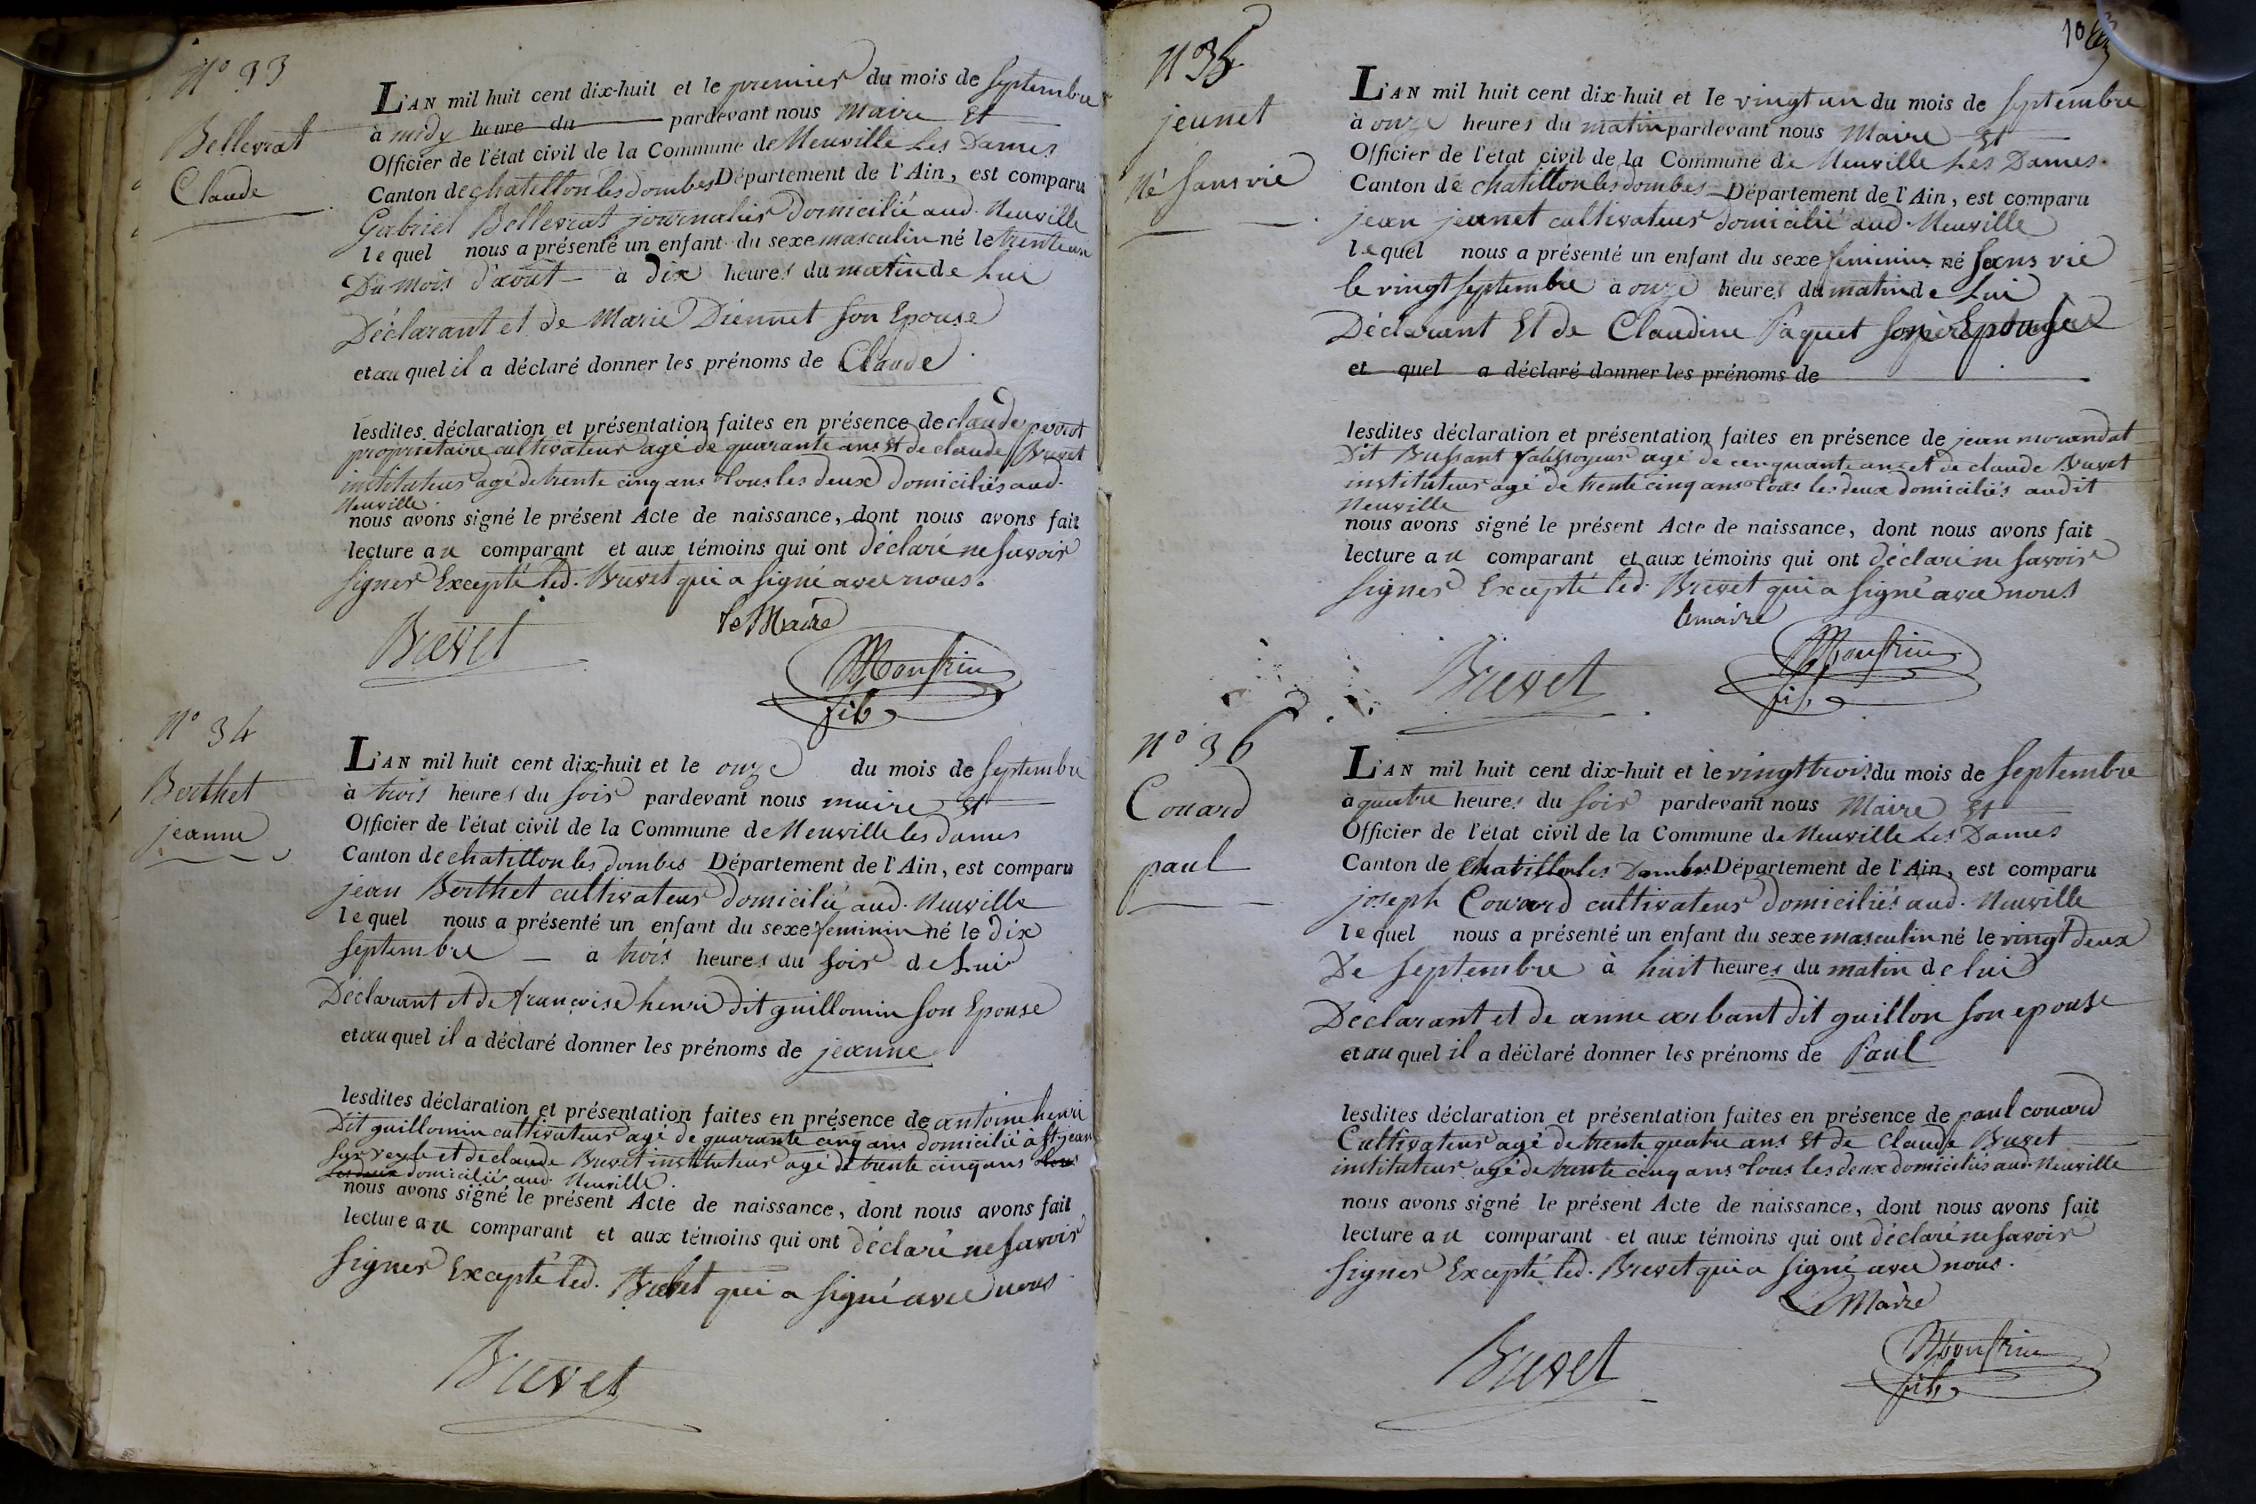 N° 33
Bellevrat
Claude
L'AN mil huit cent dix-huit et le premier du mois de Septembre
à midy heure du pardevant nous Maire Et
Officier de l'état civil de la Commune de Neuville Les Dames
Canton de chatillon les dombes Département de l'Ain, est comparu
Gabriel Bellevrat journalier Domicilié aud. Neuville
lequel nous a présenté un enfant du sexe masculin né le trente un
Du mois d'août à dix heures du matin de Lui
Déclarant et de Marie Diennet Son Epouse
et au quel il a déclaré donner les prénoms de Claude
lesdites déclaration et présentation faites en présence de claude perrot
propriétaire cultivateur agé de quarante ans Et de claude Brevet
instituteur agé de trente cinq ans tous les deux domiciliés aud.
Neuville.
nous avons signé le présent Acte de naissance, dont nous avons fait
lecture au comparant et aux témoins qui ont déclaré ne Savoir
Signer Excepté led. Brevet qui a Signé avec nous.
le Maire
Brevet
Monfrin
fils
N° 34
Berthet
jeanne
L'AN mil huit cent dix-huit et le onze du mois de Septembre
à trois heures du Soir pardevant nous maire Et
Officier de l'état civil de la Commune de Neuville les dames
Canton de chatillon les dombes Département de l'Ain, est comparu
jean Berthet cultivateur domicilié aud. Neuville
lequel nous a présenté un enfant du sexe feminin né le dix
Septembre à trois heures du Soir de Lui
Déclarant et de françoise henri dit guillomin Son Epouse
et au quel il a déclaré donner les prénoms de jeanne
lesdites déclaration et présentation faites en présence de antoine henri
Dit guillomin cultivateur agé de quarante cinq ans domicilié à St jean
Sur veyle et de claude Brevet instituteur agé de trente cinq ans tous
les deux domiciliés aud. Neuville.
nous avons signé le présent Acte de naissance, dont nous avons fait
lecture au comparant et aux témoins qui ont déclaré ne Savoir
Signer Excepté led. Brevet qui a Signé avec nous
Brevet
N° 35
jeunet
Né Sans vie
L'AN mil huit cent dix-huit et le vingt un du mois de Septembre
à onze heures du matin pardevant nous Maire Et
Officier de l'état civil de la Commune de Neuville Les Dames.
Canton de chatillon les dombes Département de l'Ain, est comparu
jean jeunet cultivateur domicilié aud. Neuville
lequel nous a présenté un enfant du sexe feminin né Sans vie
le vingt Septembre à onze heures du matin de Lui
Déclarant Et de Claudine Paquet Son Epouse
et quel a déclaré donner les prénoms de
lesdites déclaration et présentation faites en présence de jean morandat
Dit Bussant fossoyeur agé de cinquante ans et de claude Brevet
instituteur agé de trente cinq ans tous les deux domiciliés audit
Neuville
nous avons signé le présent Acte de naissance, dont nous avons fait
lecture au comparant et aux témoins qui ont déclaré ne Savoir
Signer Excepté led. Brevet qui a Signé avec nous
le maire
Brevet
Monfrin
fils
N° 36
Couard
paul
L'AN mil huit cent dix-huit et le vingt trois du mois de Septembre
à quatre heures du Soir pardevant nous Maire Et
Officier de l'état civil de la Commune de Neuville Les Dames
Canton de Chatillon les Dombes Département de l'Ain, est comparu
joseph Couard cultivateur domiciliés aud. Neuville
lequel nous a présenté un enfant du sexe masculin né le vingt deux
De Septembre à huit heures du matin de lui
Déclarant et de anne aubant dit guillon Son epouse
et au quel il a déclaré donner les prénoms de Paul
lesdites déclaration et présentation faites en présence de paul couard
Cultivateur agé de trente quatre ans Et de Claude Brevet
instituteur agé de trente cinq ans tous les deux domiciliés aud. Neuville
nous avons signé le présent Acte de naissance, dont nous avons fait
lecture au comparant et aux témoins qui ont déclaré ne Savoir
Signer Excepté led. Brevet qui a Signé avec nous.
Le Maire
Brevet
Monfrin
fils